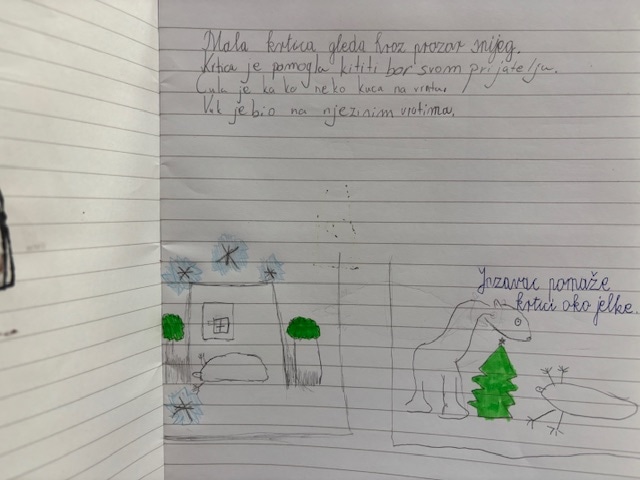 Mala krtica gleda kroz prozor snijeg.
Krtica je pomogla kititi bor svom prijatelju.
Čula je ka ko neko kuca na vratu.
Vuk je bio na njezinim vratima.
Jazavac pomaže
krtici oko jelke.